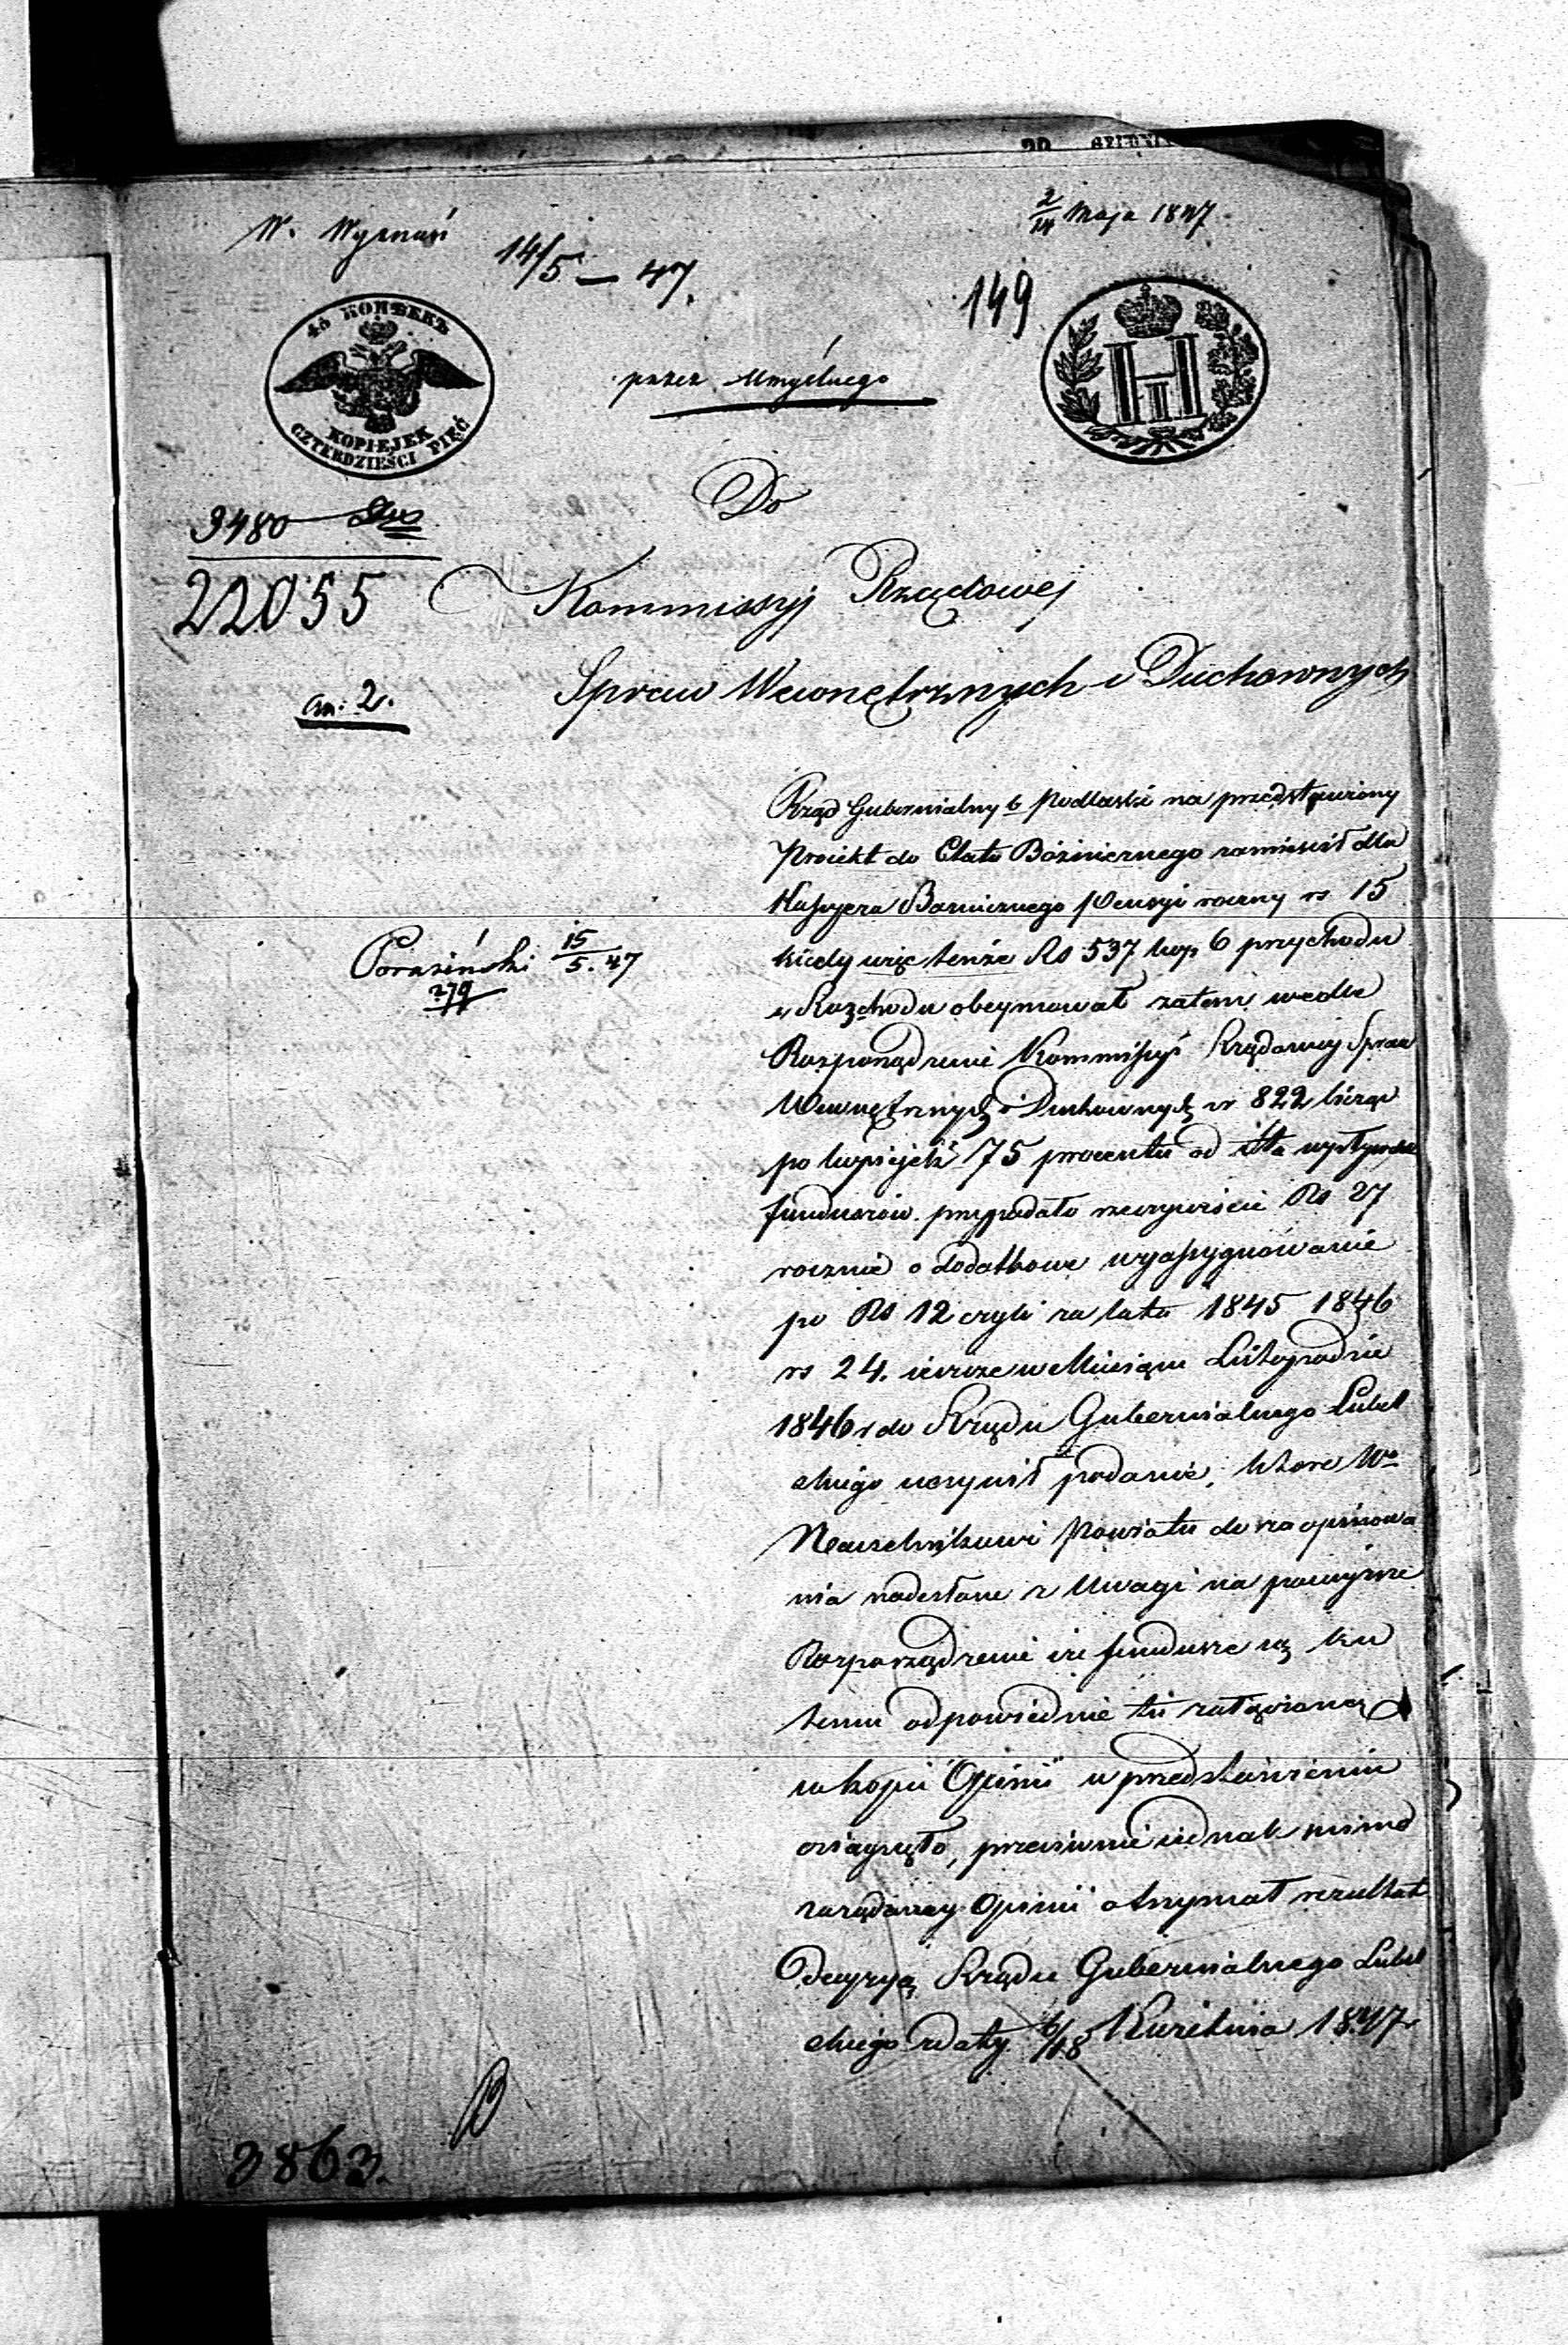 2/14 Maja 1847
14/5 – 47.
149
45 КОПѢЕКЪ
KOPIEJEK
CZTERDZIEŚCI PIĘĆ
H I
przez Umyślnego
Do
3480
22055
Kommissyj Rządowej
Spraw Wewnętrznych i Duchownych
an: 2.
Rząd Gubernialny b Podlaski na przedstawiony
Proiekt do Etatu Bóżnicznego zamieścił dla
Kassyera Bożnicznego pensyi roczny rs 15
kiedy więc tenże Rs 537 kop 6 przychodu
i Rozchodu obeymował zatem wedle
Rozporządzenie Kommissyi Rządowey Spraw
Wewnętrznych i Duchownych nr 822 licząc
po kopiejek 75 procentu od
funduszów przypadało rzeczywiście Rs 27
rocznie o dodatkowe wyassygnowanie
po Rs 12 czyli za lata 1845 1846
rs 24. ieszcze w Miesiącu Listopadzie
1846 r do Rządu Gubernialnego Lubel
skiego uczynił podanie, które Wo
Naczelnikowi Powiatu do zaopiniowa
nia nadesłane z Uwagi na powyższe
Rozporządzenie iże fundusze są ku
temu odpowiednie tu załączoną
w kopii Opinii w przedstawieniu
osiągnęło, przeciwnie iednak mimo
zażądaney Opinii otrzymał rezultat
Decyzyą Rządu Gubernialnego Lubel
skiego z daty 6/18 Kwietnia 1847
Porasiński 15/5. 47
279
3863.